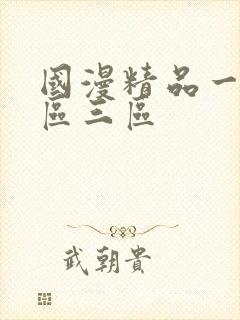 國漫精品一
區三區
武朝貴